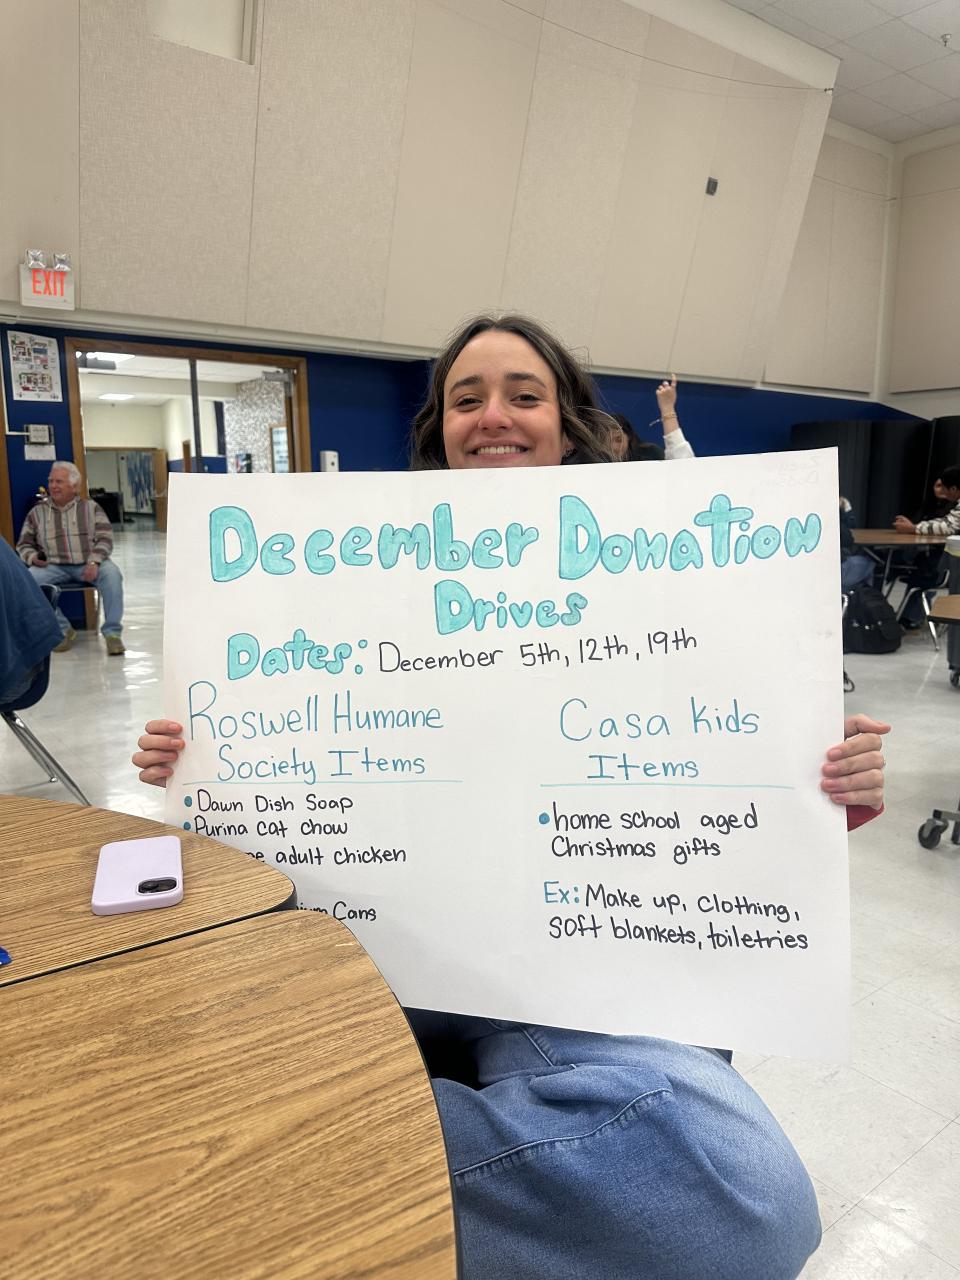 EXIT
December Donation
Drives
Dates: December 5th, 12th, 19th
Roswell Humane
Society Items
• Dawn Dish Soap
• Purina cat chow
adult chicken
Cans
Casa Kids
Items
• home school aged
Christmas gifts
Ex: Make up, clothing,
soft blankets, toiletries